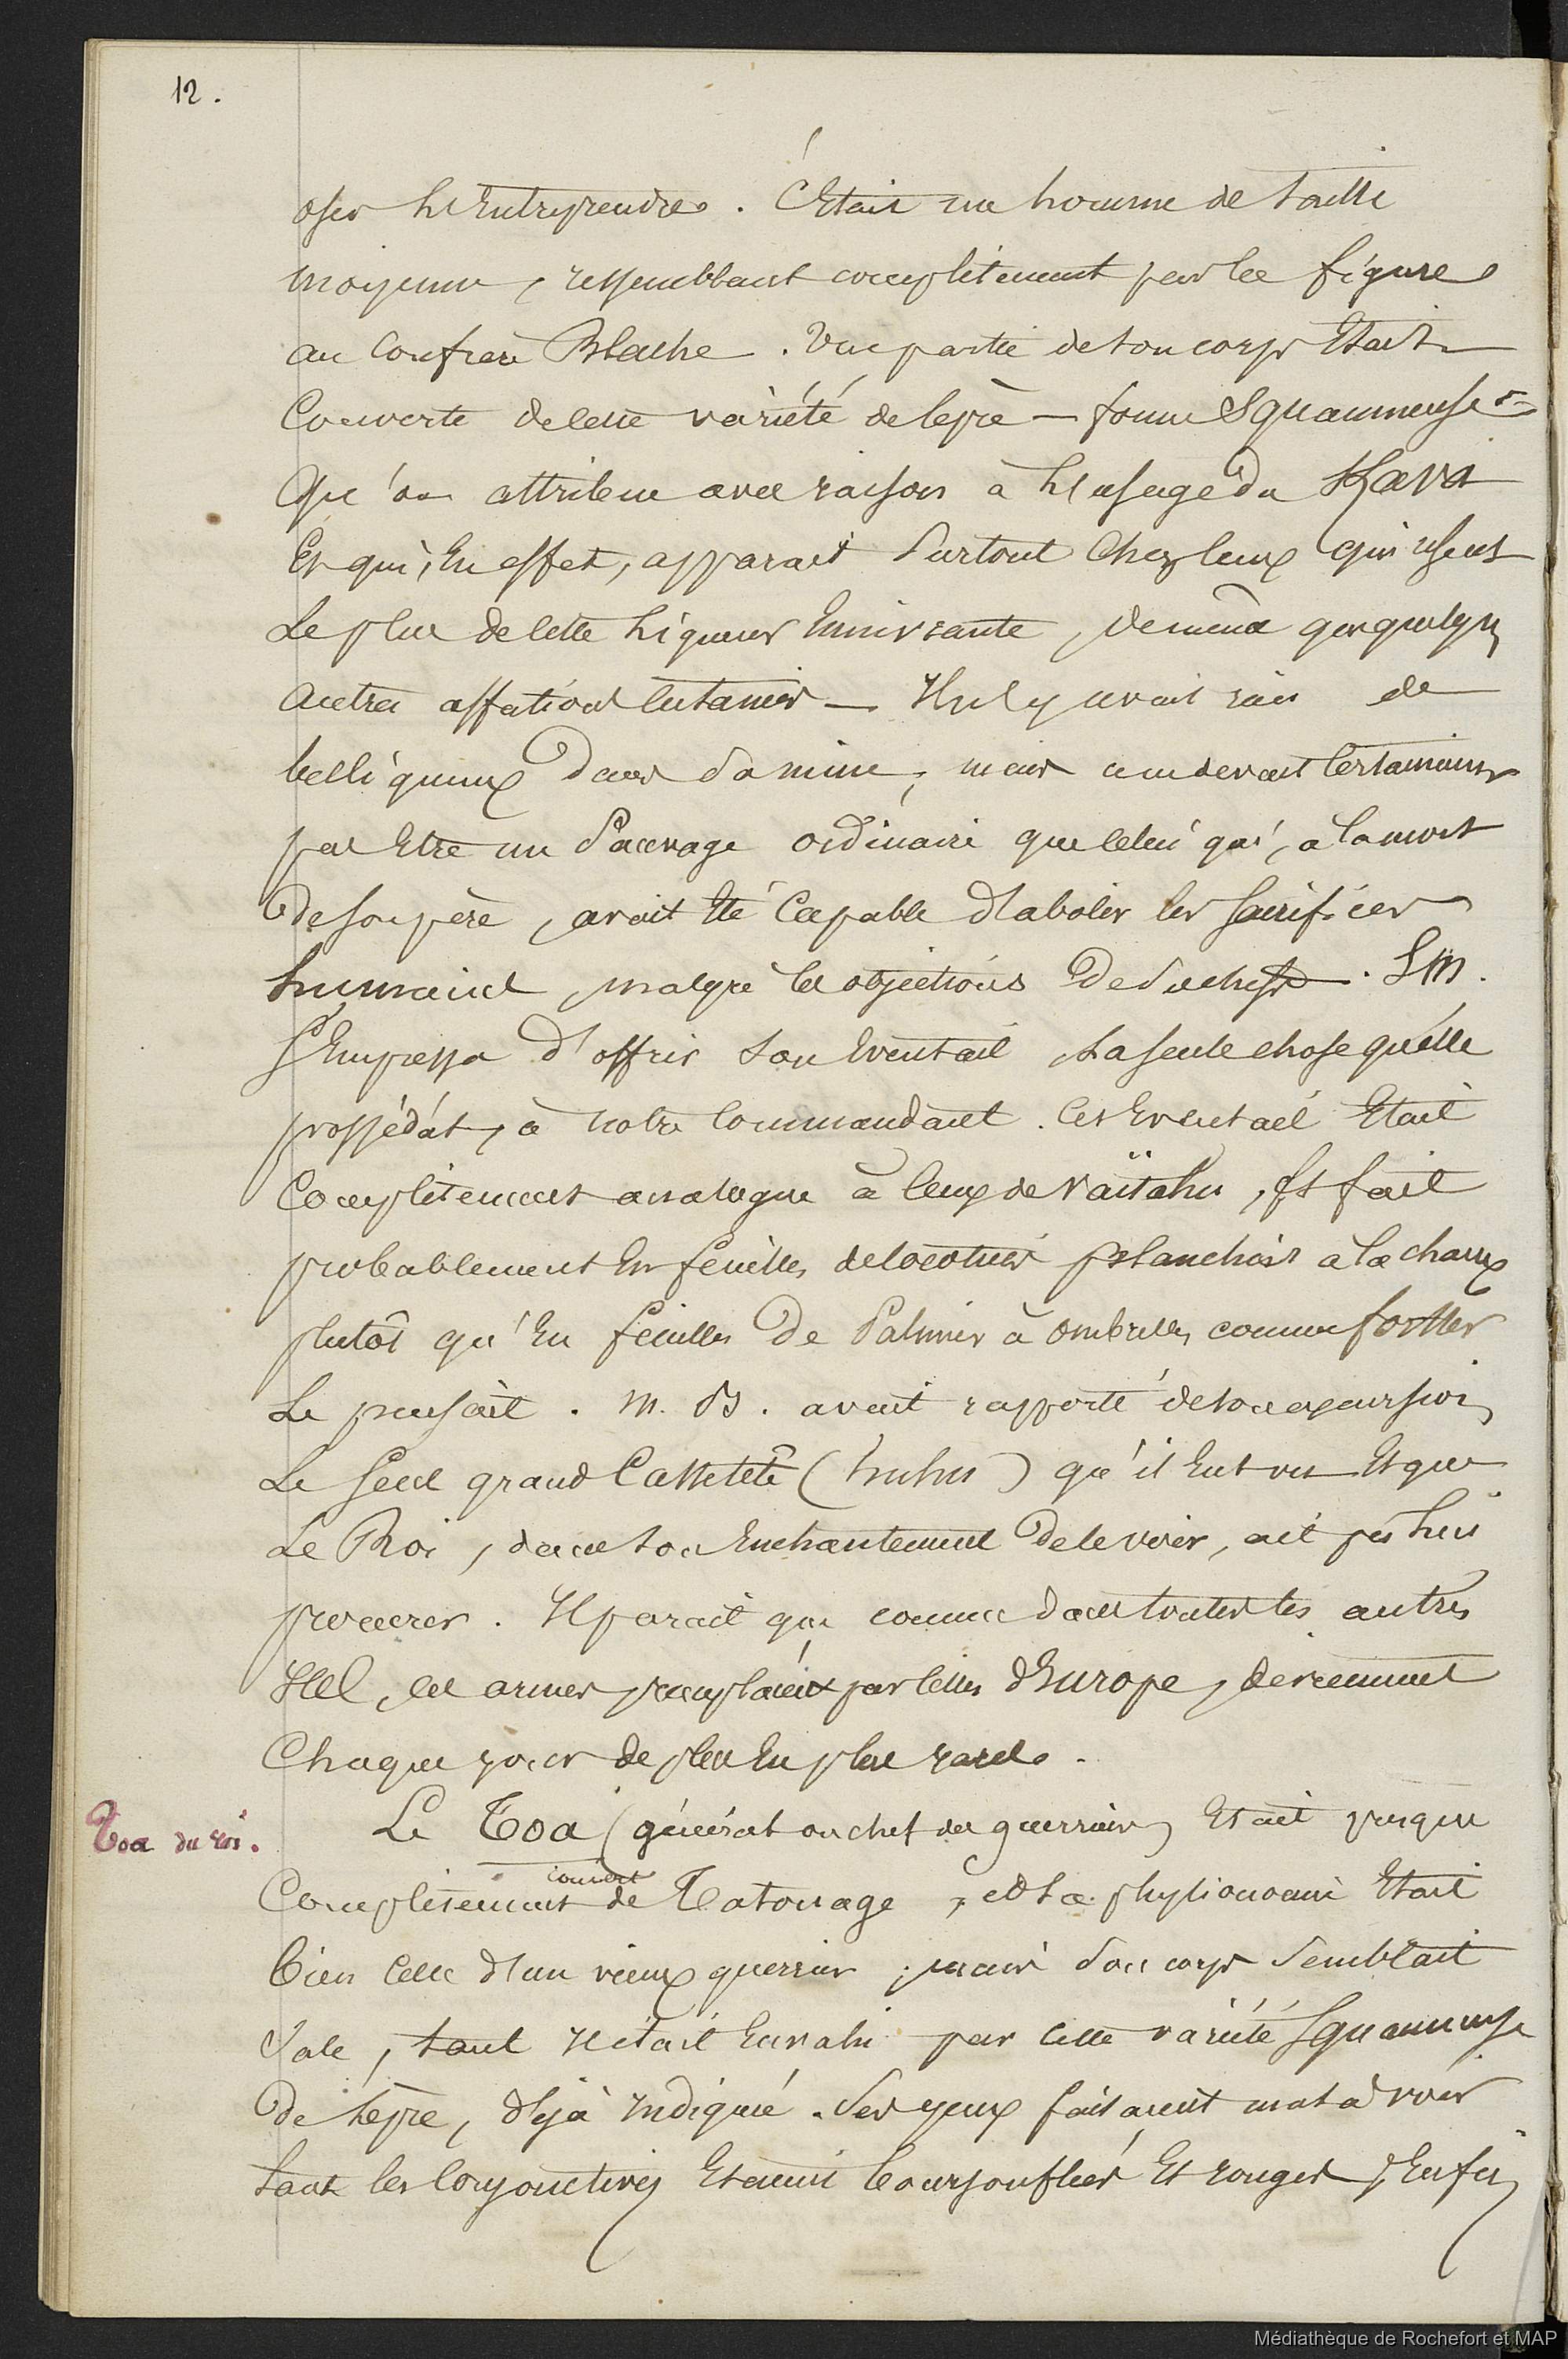 12.
oser l'entreprendre. C'était un homme de taille
moyenne, ressemblant complètement par la figure
au confrère Blache. Une partie de son corps était
couverte de cette variété de lèpre — forme squammeuse —
qu'on attribue avec raison à l'usage du Kava
et qui, en effet, apparait surtout chez ceux qui usent
le plus de cette liqueur enivrante, de même que quelques
autres affections cutanées — Il n'y avait rien de
belliqueux dans sa mine, mais ce ne devait certainement
pas être un sauvage ordinaire que celui qui, à la mort
de son père, avait été capable d'abolir les sacrifices
humains, malgré les objections de ses chefs. S.M.
s'empressa d'offrir son éventail, la seule chose qu'elle
possédât, à notre commandant. Cet éventail était
complètement analogue à ceux de Vaïtahu, et fait
probablement en feuilles de cocotier blanchies à la chaux
plutôt qu'en feuilles de Palmier à ombrelles comme forster
le pensait. M. B. avait rapporté de son excursion
le seul grand Cassetête (huhu) qu'il eut vu et que
le Roi, dans son enchantement de le voir, ait pu lui
procurer. Il parait que comme dans toutes les autres
Iles, les armes, remplacées par celles d'Europe, deviennent
chaque jour de plus en plus rares.
Toa du roi.
Le Toa (général ou chef des guerriers) était presque
couvert
complètement de Tatouage, et sa physionomie était
bien celle d'un vieux guerrier, mais son corps semblait
sale, tant il était envahi par cette variété squammeuse
de lèpre, déjà indiquée. Ses yeux faisaient mal à voir
tant les conjonctives étaient boursouflées et rouges, Enfin,